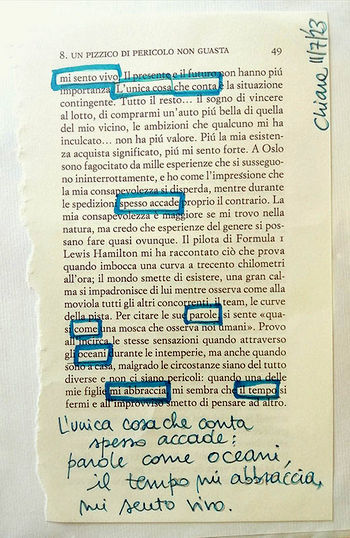 8. UN PIZZICO DI PERICOLO NON GUASTA 49
mi sento vivo. Il presente e il futuro non hanno più
importanza. L'unica cosa che conta è la situazione
contingente. Tutto il resto... il sogno di vincere
al lotto, di comprarmi un'auto più bella di quella
del mio vicino, le ambizioni che qualcuno mi ha
inculcato... non ha più valore. Più la mia esisten-
za acquista significato, più mi sento forte. A Oslo
sono fagocitato da mille esperienze che si susseguo-
no ininterrottamente, e ho come l'impressione che
la mia consapevolezza si disperda, mentre durante
le spedizioni spesso accade proprio il contrario. La
mia consapevolezza è maggiore se mi trovo nella
natura, ma credo che esperienze del genere si pos-
sano fare quasi ovunque. Il pilota di Formula 1
Lewis Hamilton mi ha raccontato ciò che prova
quando imbocca una curva a trecento chilometri
all'ora; il mondo smette di esistere, una gran cal-
ma si impadronisce di lui mentre osserva come alla
moviola tutti gli altri concorrenti, il team, le curve
della pista. Per citare le sue parole si sente «qua-
si come una mosca che osserva noi umani». Provo
all'incirca le stesse sensazioni quando attraverso
gli oceani durante le intemperie, ma anche quando
sono a casa, malgrado le circostanze siano del tutto
diverse e non ci siano pericoli: quando una delle
mie figlie mi abbraccia mi sembra che il tempo si
fermi e all'improvviso smetto di pensare ad altro.
L'unica cosa che conta
spesso accade:
parole come oceani,
il tempo mi abbraccia,
mi sento vivo.
Chiara 11/7/23